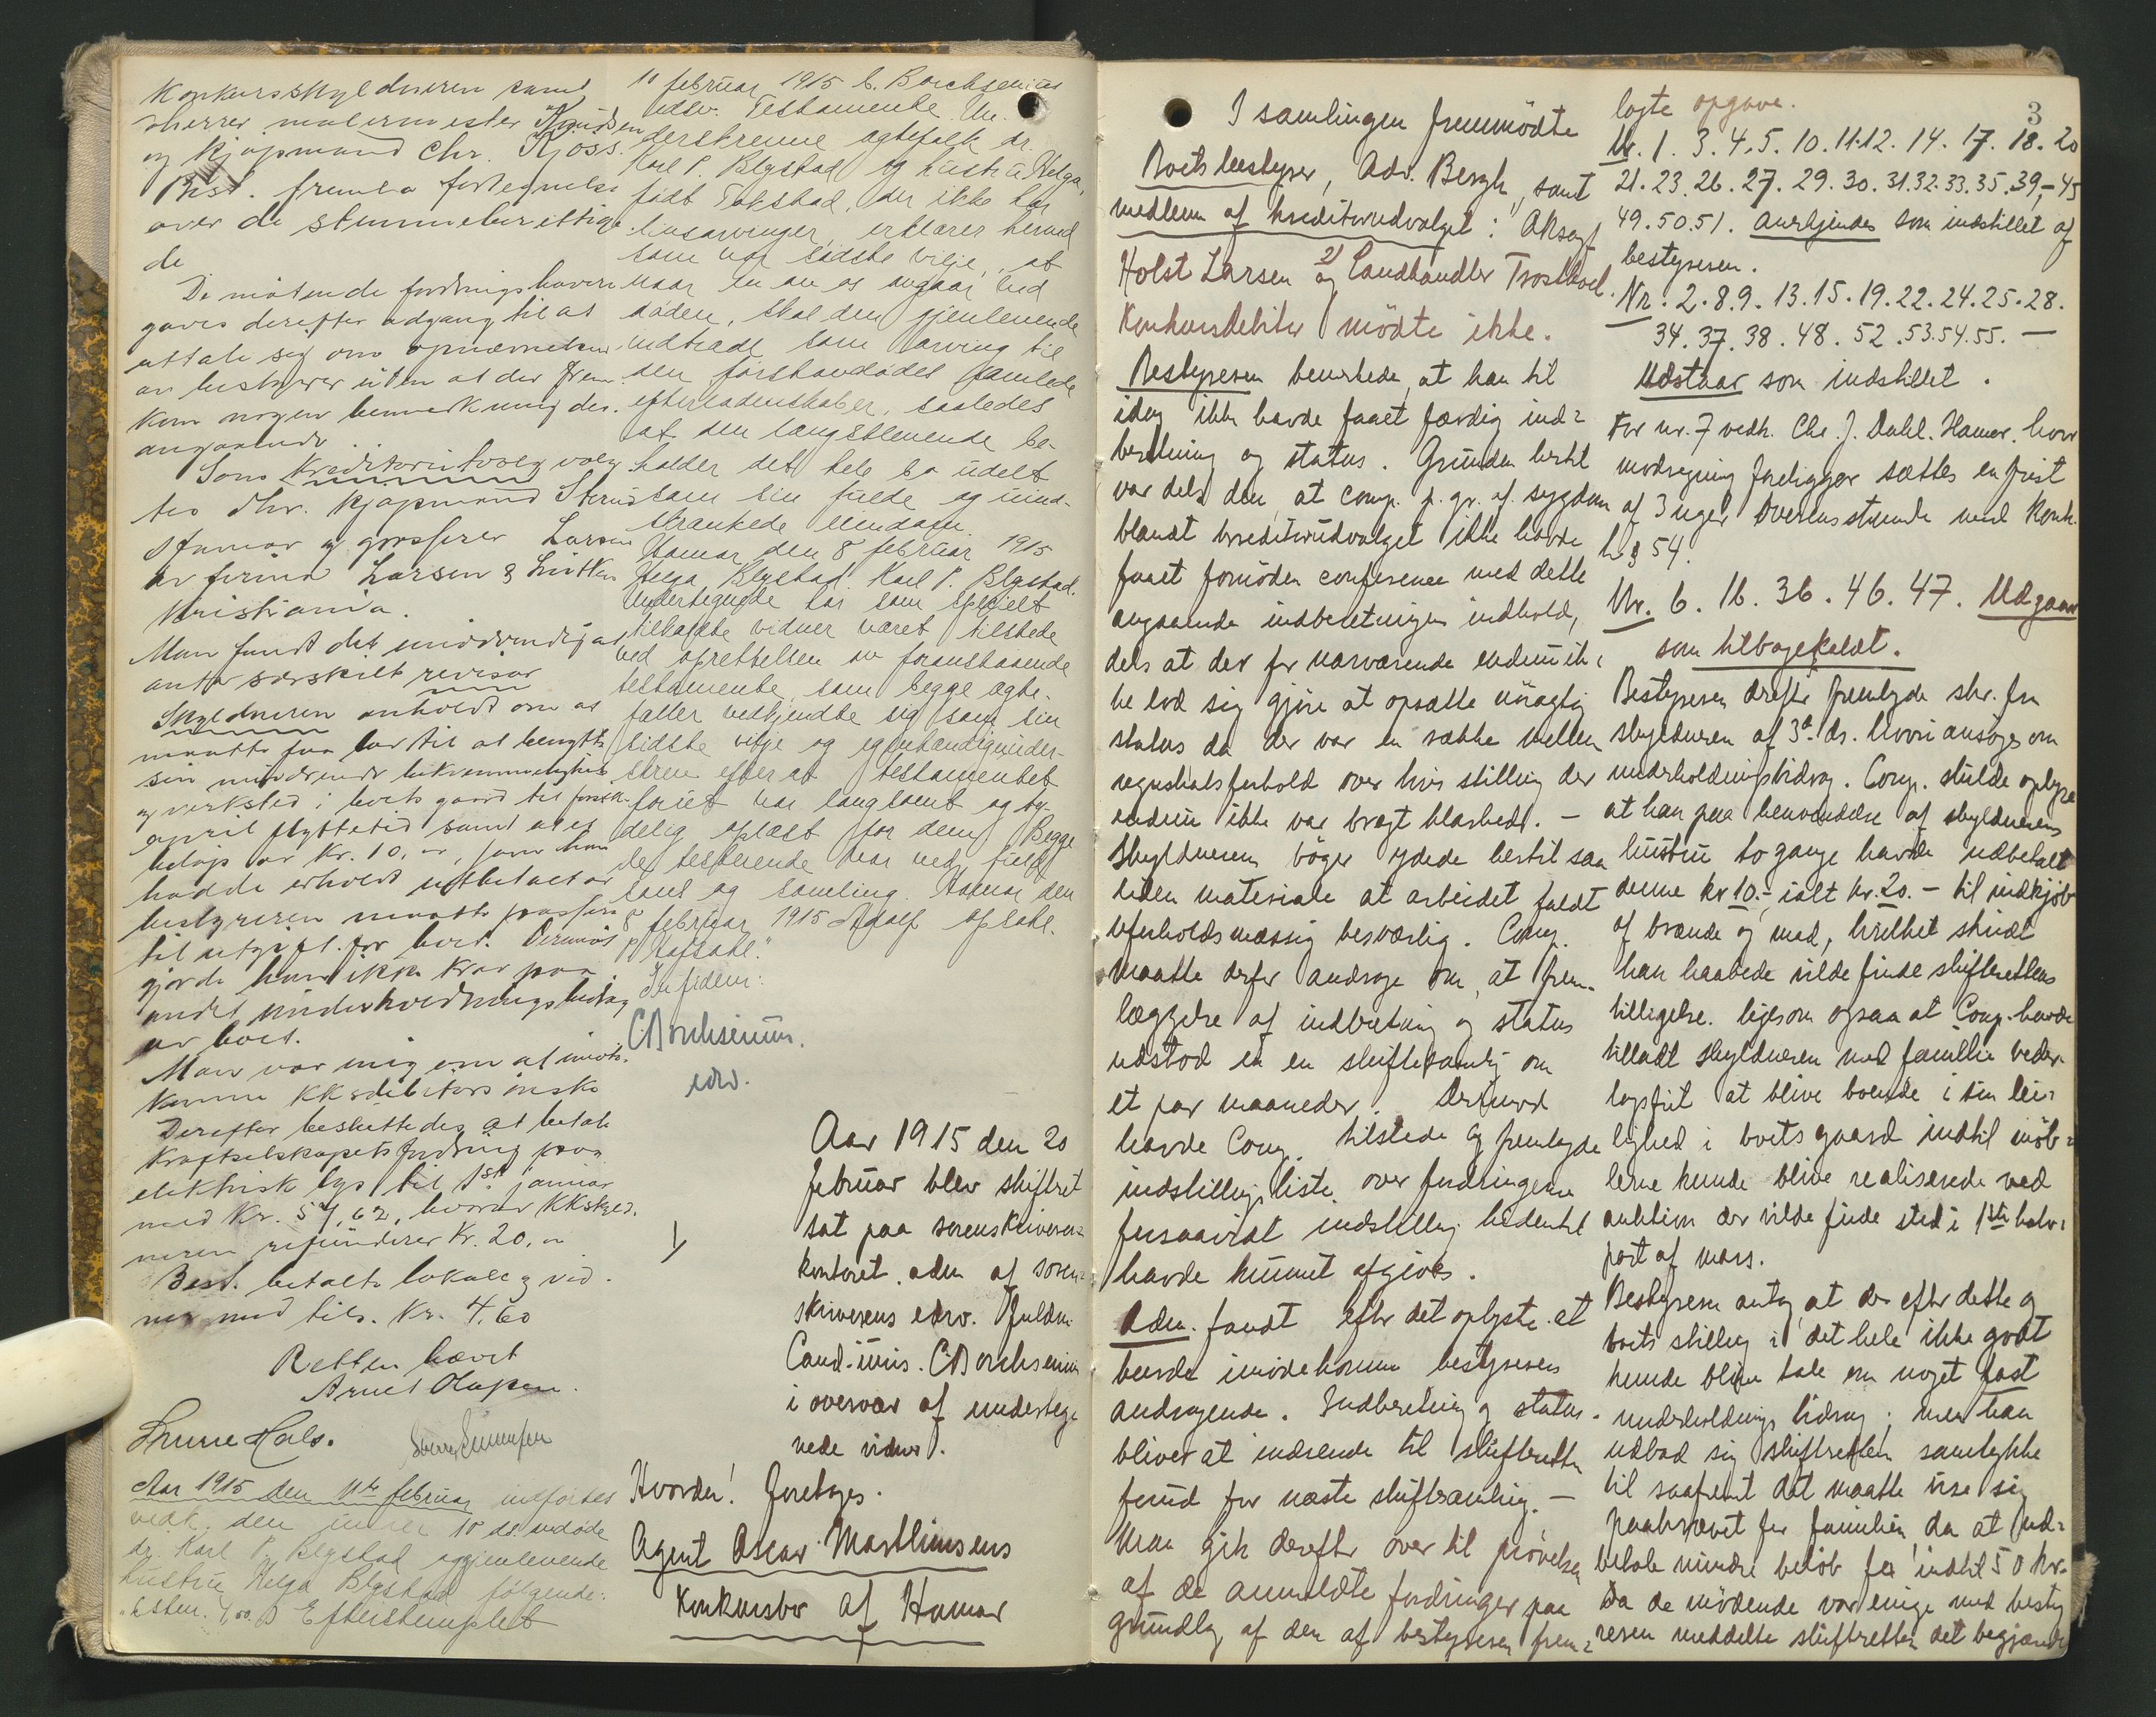 Konkursskyldneren samt
dherrer malermester Knudsen
og kjøpmand Chr. Kjoss.
Best. fremla fortegnelse
over de stemmeberettige
de
De møtende fordringshavere
gaves derefter adgang til at
uttale sig om opnævnelsen
av bestyrer uten at der frem
kom nogen bemerkning des.
angaaende.
Som Kreditorutvalg valg
tes dhr. kjøpmand
Hamar og grosserer Larsen
av firma Larsen &
Kristiania.
Man fandt det unødvendig at
anta særskilt revisor
Skyldneren anholdt om at
maatte faa lov til at benytte
sin nuværende bekvemmelighet
og verksted i boets gaard til førstk.
april flyttetid samt at et
beløp av Kr. 10,-, som han
hadde erholdt utbetalt av
bestyreren maatte passere
til utgift for boet. Derimot
gjorde han ikke krav paa
andet underholdningsbidrag
av boet.
Man var enig om at imøte-
komme KKsdebitors ønske
Derefter besluttedes at betale
Kraftselskapets fordring paa
elektrisk lys til 1ste januar
med Kr. 57,62, hvorav KKskyld.
neren refunderer Kr. 20,-
Best. betalte lokale og vid-
ner med tils. Kr. 4,60
Retten hævet
Arnet Olafsen.
Aar 1915 den 11te februar indførtes
vedk. den 10 ds. avdøde
dr. Karl P. Blystad og gjenlevende
hustru Helga Blystad følgende:
Efterstemplet
10 februar 1915 C. Borchsenius
edsv. Testamente. Un-
derskrevne egtefolk dr.
Karl P. Blystad og hustru Helga,
født Tokstad, der ikke har
livsarvinger, erklærer herved
som vor sidste vilje, at
naar en av os avgaar ved
døden, skal den gjenlevende
indtræde som arving til
den førstavdødes samlede
efterladenskaber, saaledes
at den længstlevende be-
holder det hele bo udelt
som sin fulde og uind-
skrænkede eiendom.
Hamar den 8 februar 1915
Helga Blystad. Karl P. Blystad.
Undertegnede har som specielt
tilkaldte vidner været tilstede
ved oprettelsen av foranstaaende
testamente, som begge egte-
fæller vedkjendte sig som sin
sidste vilje og egenhændig under-
skrev efterat testamentet
forut var langsomt og ty-
delig oplæst for dem. Begge
de testerende var ved fuld
sans og samling. Hamar den
8 februar 1915 Adolf Opsahl.
P. Hafsahl."
In fidem:
CBorchsenius.
edsv.
Aar 1915 den 20
februar blev skifteret
sat paa sorenskriver-
kontoret, adm. af soren-
skriverens edsv. fuldm.
Cand. juris. CBorchsenius
i overvær af underteg-
nede vidner.
Hvorda! foretoges.
Agent Oscar Marthinsens
Konkursbo af Hamar
3
I samlingen fremmødte
Boets bestyrer, Adv. Bergh, samt
medlem af kreditorudvalget: 1) Aksagf
Holst Larsen 2) og Landhandler
Konkursdebitor mødte ikke.
Bestyreren bemerkede, at han til
idag ikke havde faaet færdig ind-
beretning og status. Grunden hertil
var dels den, at comp. p. gr. af sygdom
blandt kreditorudvalget ikke havde
faaet fornøden conference med dette
angaaende indberetningens indhold,
dels at der for nærværende endnu ik-
ke lod sig gjøre at opsætte nøiagtig
status da der var en række mellem
regnskabsforhold over hvis stilling der
endnu ikke var bragt klarhed. -
Skyldnerens bøger ydede hertil saa
liden materiale at arbeidet faldt
uforholdsmæssig besværlig. Comp.
maatte derfor andrage om, at frem-
læggelse af indberetning og status
udstod til en skiftesamling om
et par maaneder. Derimod
havde Comp. tilstede og fremlagde
indstillingsliste over fordringerne
forsaavidt indstilling hidentil
havde kunnet afgives.
Adm. fandt efter det oplyste at
burde imødekomme bestyrerens
andragende. Indberetning og status
bliver at indsende til skifteretten
forud for næste skiftesamling. -
Man gik derefter over til prøvelse
af de anmeldte fordringer paa
grundlag af den af bestyreren frem-
lagte opgave.
Nr. 1. 3. 4. 5. 10. 11. 12. 14. 17. 18. 20
21. 23. 26. 27. 29. 30. 31. 32. 33. 35. 39,-45
49. 50. 51. anerkjendes som indstillet af
bestyreren.
Nr. 2. 8. 9. 13. 15. 19. 22. 24. 25. 28.
34. 37. 38. 48. 52. 53. 54. 55. -
Udstaar som indstillet.
For nr. 7 vedk. Chr. J. Dahl. Hamar, hvor
modregning foreligger sættes en frist
af 3 uger overensstemmende med Konk.
l. § 54.
Nr. 6. 16. 36. 46. 47. Udgaar
som tilbagekaldt.
Bestyreren derefter fremlagde skr. fra
skyldneren af 3de ds. hvori ansøges om
underholdningsbidrag. Comp. skulde oplyse
at han paa henvendelse af skyldnerens
hustru to gange havde udbetalt
denne kr 10.-, ialt kr. 20.- til indkjøb
af brænde og mad, hvilket skridt
han haabede vilde finde skifterettens
billigelse. ligesom ogsaa at Comp. havde
tilladt skyldneren med familie veder-
lagsfrit at blive boende i sin lei-
lighed i boets gaard indtil møb-
lerne kunde blive realiserede ved
auktion der vilde finde sted i 1ste halv-
part af mars.
Bestyreren antog, at der efter dette og
boets stilling i det hele ikke godt
kunde blive tale om noget fast
underholdnings bidrag; men han
udbad sig skifterettens samtykke
til saafremt det maatte vise sig
paakrævet for familien, da at ud-
betale mindre beløb for indtil 50 kr.
Da de mødende var enige med besty
reren meddelte skifteretten det begjærede